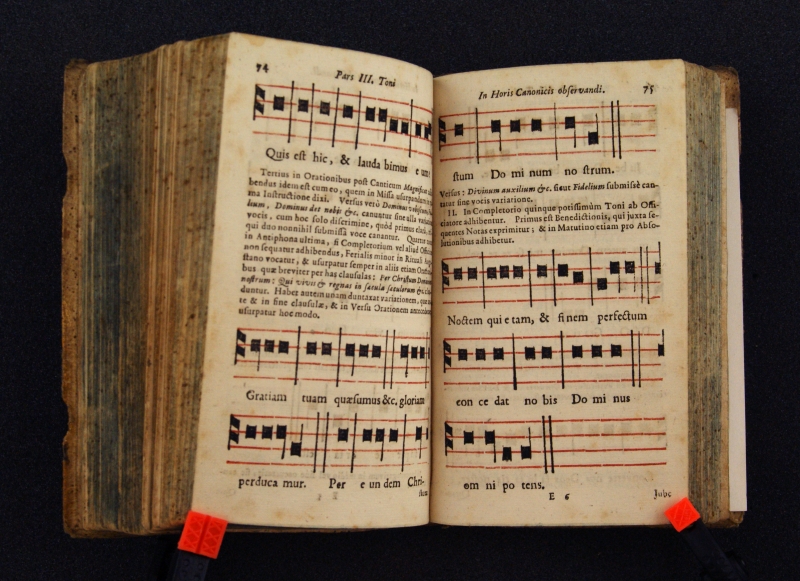 74
Pars III. Toni
Quis est hic, & lauda bimus e um?
Tertius in Orationibus post Canticum Magnificat
bendus idem est cum eo, quem in Missa usurpandum
ma Instructione dixi. Versus verò Dominus vobiscum,
lium, Dominus det nobis &c. canuntur sine ulla
vocis, cum hoc solo discrimine, quòd primus
qui duo nonnihil submissâ voce canantur. Quartus
in Antiphona ultima, si Completorium vel aliud
non sequatur adhibendus, Ferialis minor in Rituali
stano vocatur, & usurpatur semper in aliis etiam
bus quæ breviter per has clausulas: Per Christum Dominum
nostrum: Qui vivis & regnas in sæcula sæculorum &c.
duntur. Habet autem unam duntaxat variationem,
te & in fine clausulæ, & in Versu Orationem
usurpatur hoc modo.
Gratiam tuam quæsumus &c. gloriam
perduca mur. Per e un dem Chri-
stum
In Horis Canonicis observandi.
75
stum Do mi num no strum.
Versus: Divinum auxilium &c. sicut Fidelium submissè can-
tatur sine vocis variatione.
II. In Completorio quinque potissimùm Toni ab Offi-
ciatore adhibentur. Primus est Benedictionis, qui juxta se-
quentes Notas exprimitur; & in Matutino etiam pro Abso-
lutionibus adhibetur.
Noctem qui e tam, & finem perfectum
con ce dat no bis Do mi nus
om ni po tens.
E 6
Jube